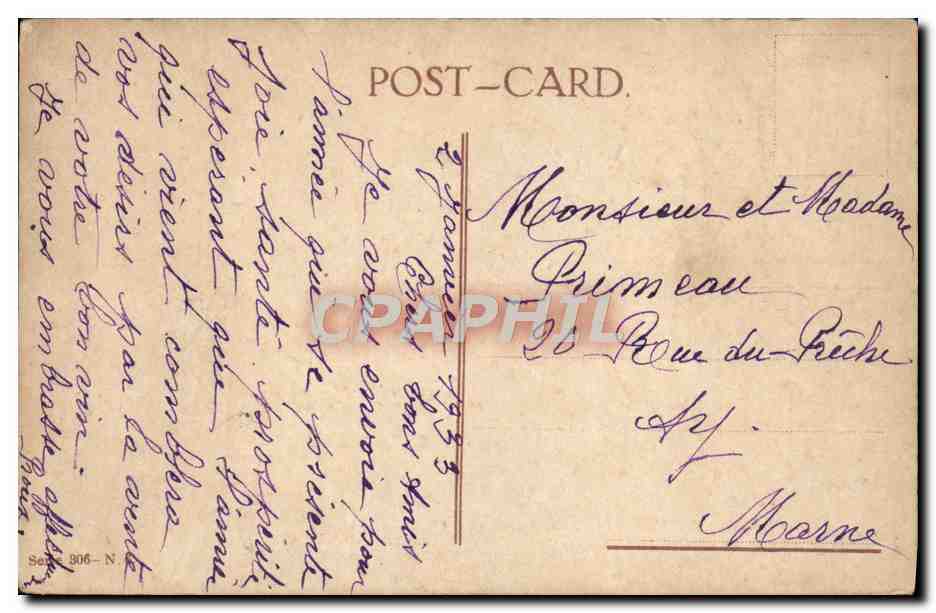 POST-CARD.
2 Janvier 1933
Chers bons Amis
Je vous envoie pour
l'année qui se présente
Joie, santé, prospérité
espérant que l'année
qui vient comblera
vos désirs par la vente
de votre bon vin.
Je vous embrasse
Monsieur et Madame
Primeau
20 - Rue du - Prêche
Ay.
Marne
Serie 306 - N.
CPAPHIL